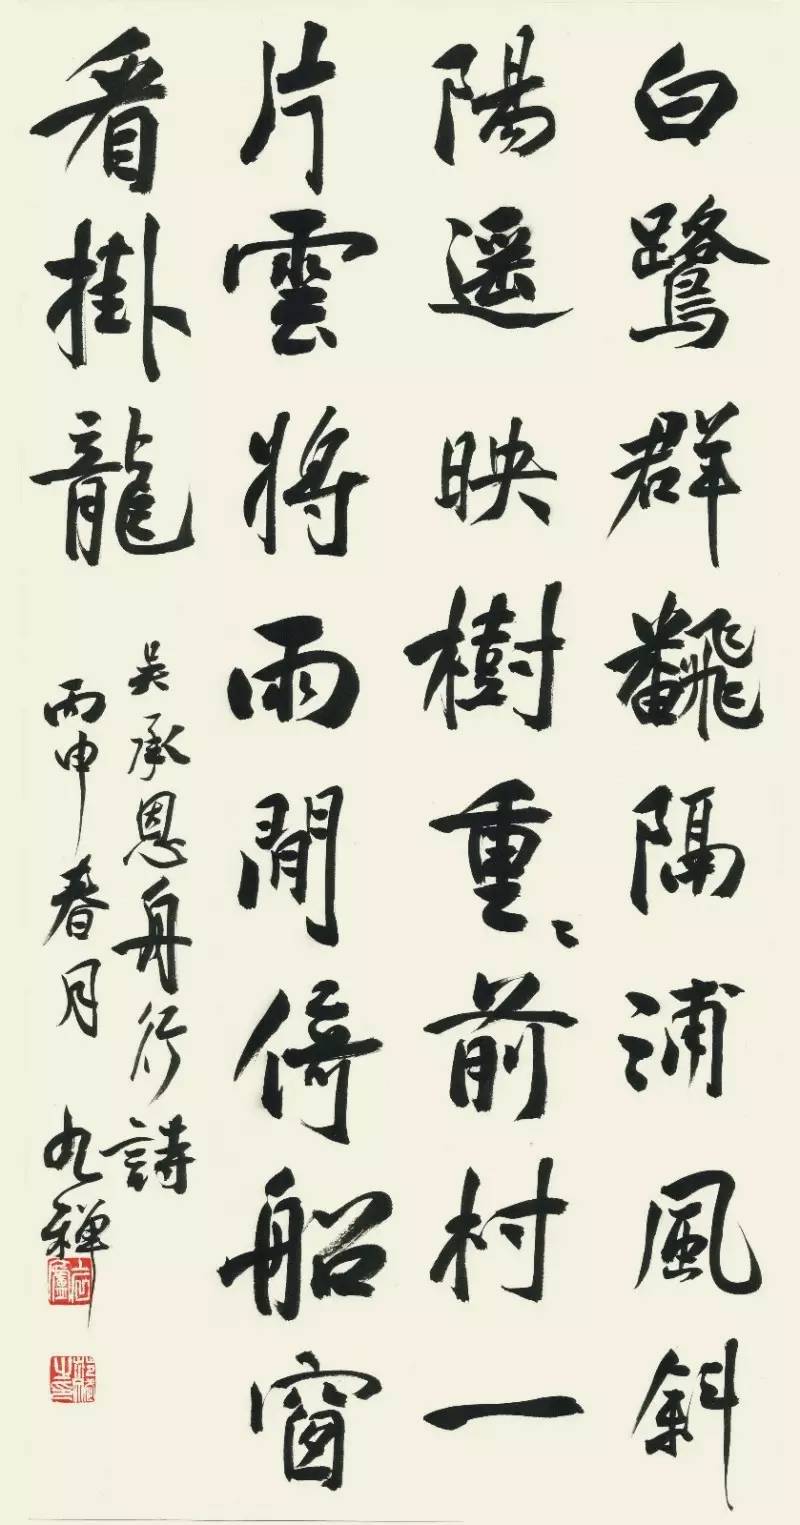 白鷺群飜隔浦風斜
陽遥映樹重〻前村一
片雲將雨閒倚船窗
看掛龍
吴承恩舟行詩
丙申春月 九禪